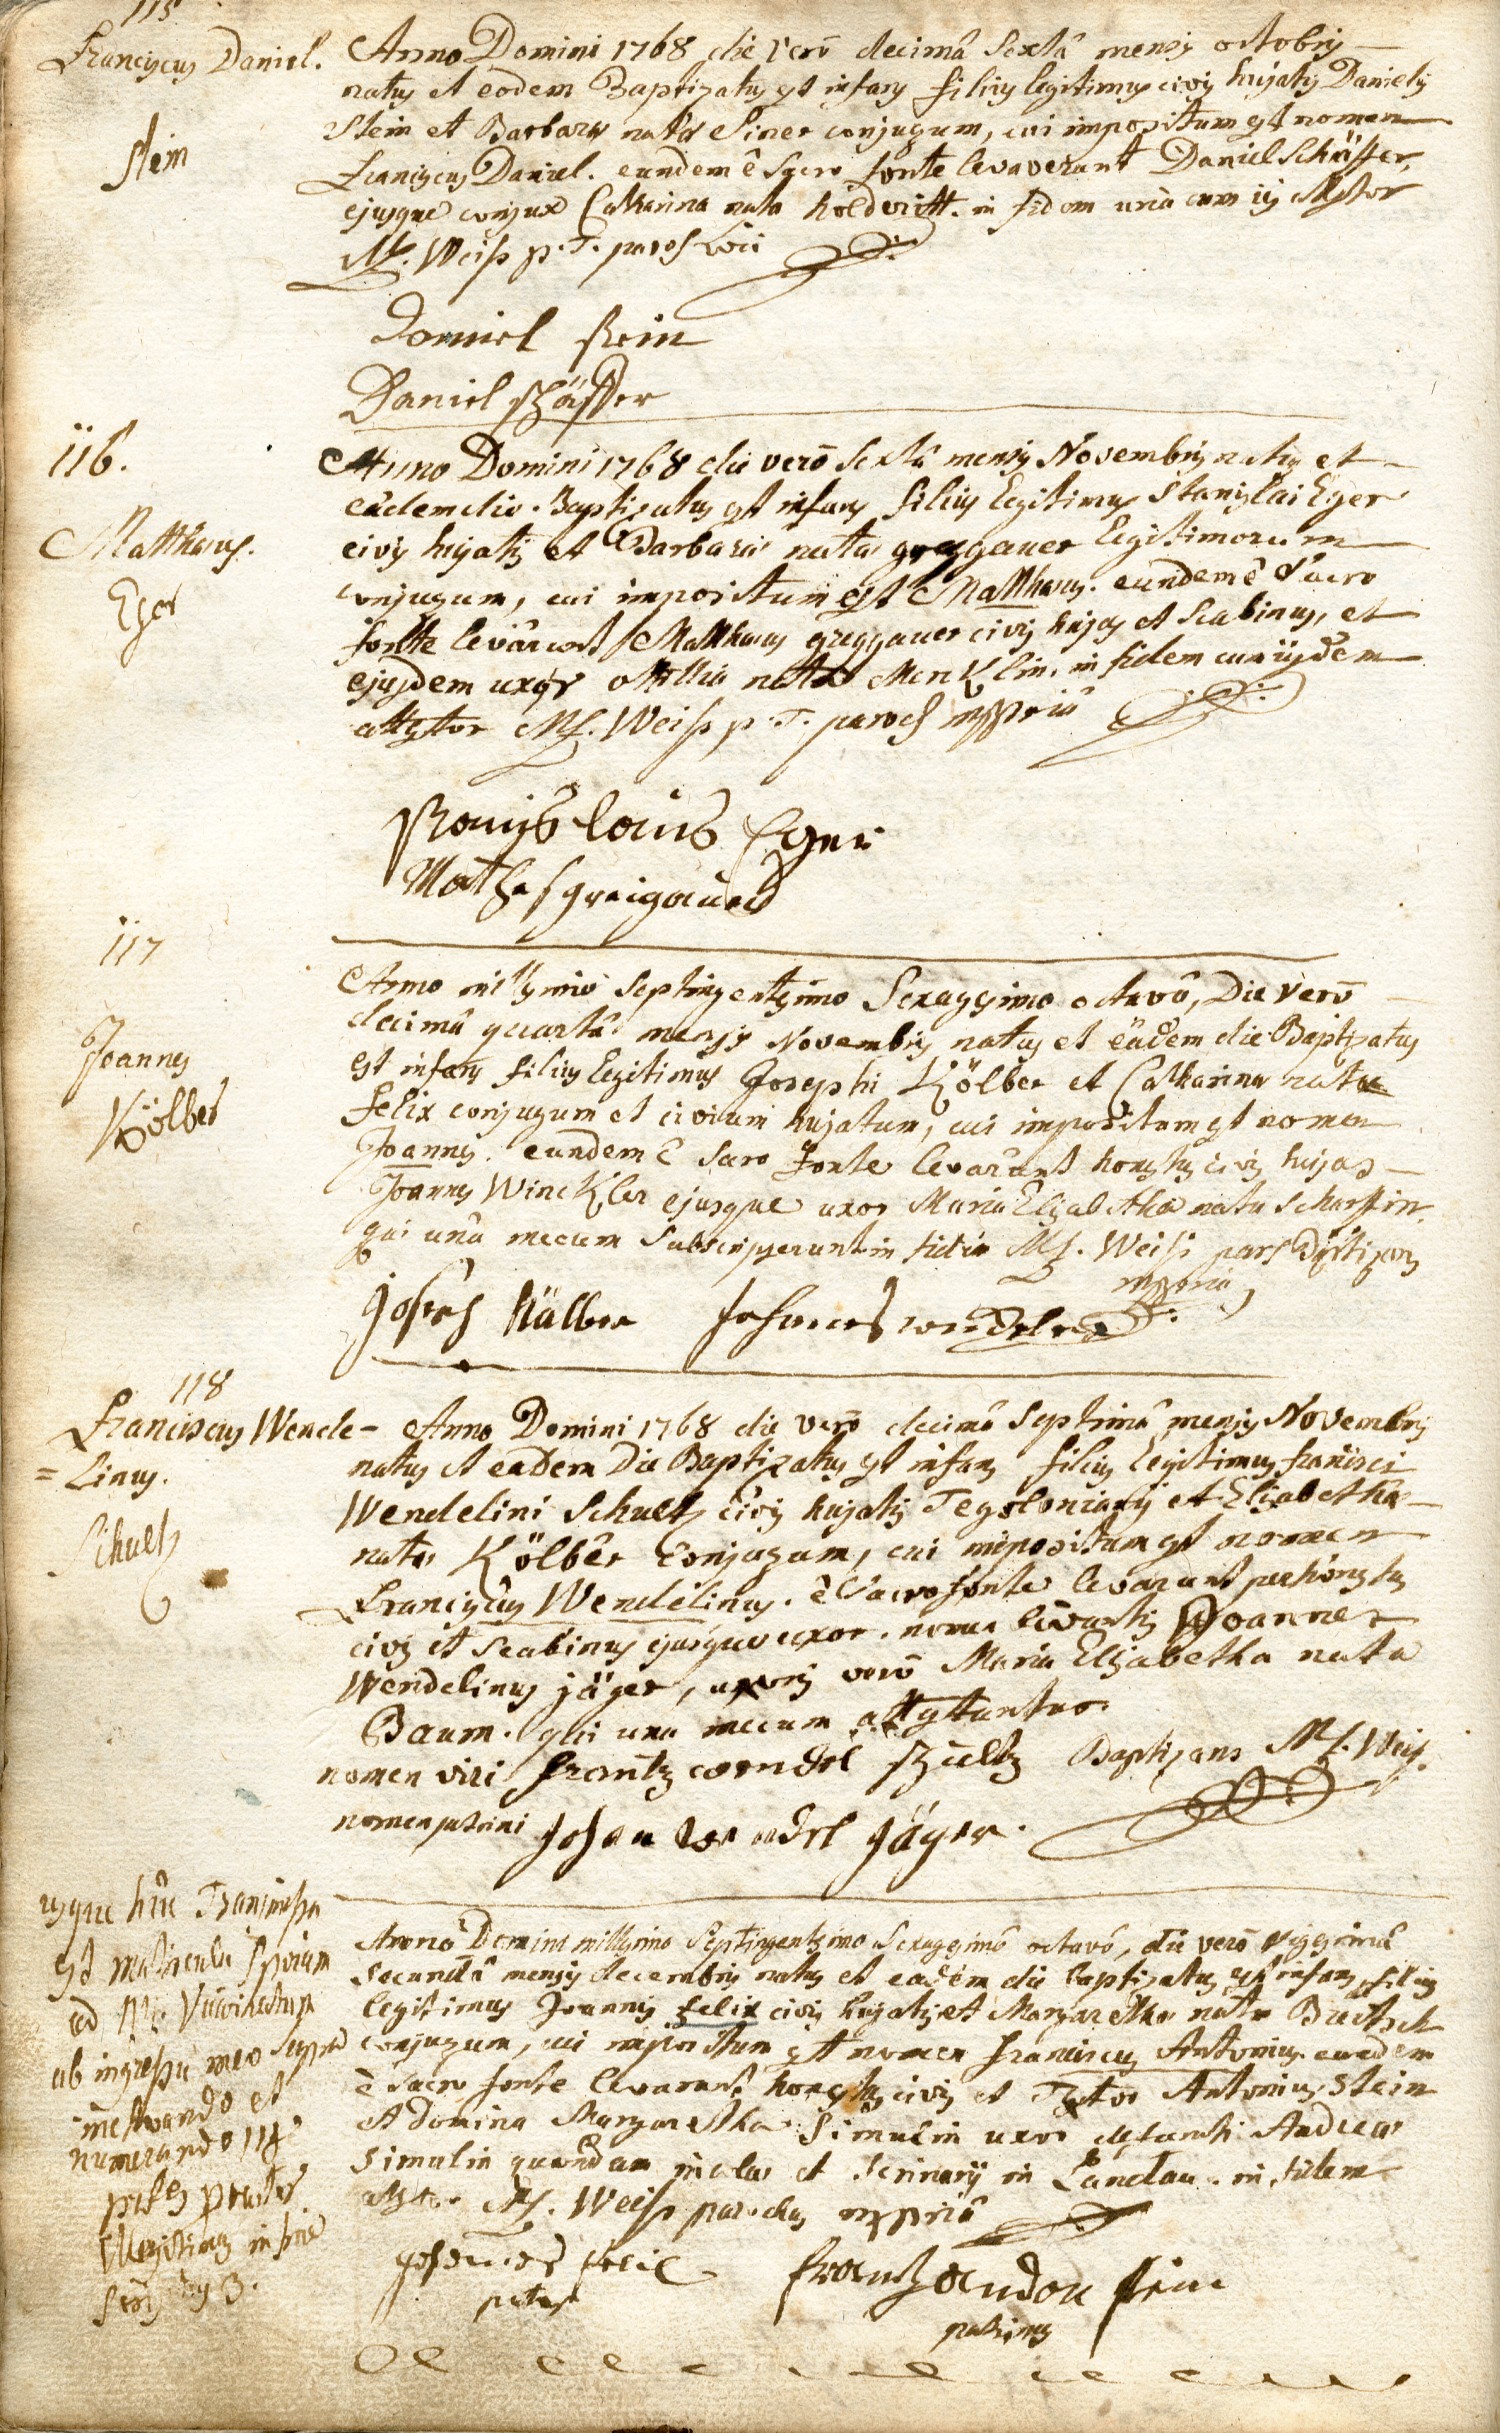 115
Franciscus Daniel.
Stein
Anno Domini 1768 die verò decimâ sextâ mensis octobris
natus et eodem Baptizatus est infans filius legitimus civis hujatis Danielis
Stein et Barbarae natae Siner conjugum, cui impositum est nomen
Franciscus Daniel. eundem è Sacro fonte levaverunt Daniel Schäffer,
ejusque conjux Catharina nata holdvritt. in fidem unà cum iis Attestor
M. Weiß p. T. paroch Loci
Daniel Stein
Daniel Schäffer
116.
Matthaeus.
Eger
Anno Domini 1768 die verò Sextâ mensis Novembris natus et
eâdem die Baptizatus est infans filius legitimus Stanislai Eger
civis hujatis et Barbarae natae greggauer legitimorum
conjugum, cui impositum est Matthaeus. eundem è Sacro
fonte levârunt Matthaeus greggauer civis hujas et Scabinus, et
ejusdem uxor ottilia nata Menklin. in fidem cum iisdem
attestor M. Weiß p. T. paroch mppriâ
Stanislaus Eger
Mathes greigauer
117
Joannes
Kölber
Anno millesimo Septingentesimo Sexagesimo octavô, Die verò
decimâ quartâ mensis Novembris natus et eâdem die Baptizatus
est infans filius legitimus Josephi Kölber et Catharinae natae
felix conjugum et civium hujatum, cui impositum est nomen
Joannes. eundem è sacro fonte levarunt honestus civis hujas
Joannes Winckler ejusque uxor Maria Elisabetha nata Scharffin.
qui unâ mecum Subscripserunt in fidem M. Weiß paroch Baptizans
mppriâ
Joseph Kälber Johannes
118
Franciscus Wende-
=linus.
Schultz
Anno Domini 1768 die verò decimâ Septimâ mensis Novembris
natus et eâdem Die Baptizatus est infans filius legitimus francisci
Wendelini Schultz civis hujatis Teloniarii et Elisabethae
natae Kölber conjugum, cui impositum est nomen
Franciscus Wendelinus. è Sacro fonte levarunt perhonestus
civis et Scabinus ejusque uxor. nomen levantis Joannes
Wendelinus jäger, uxoris verò Maria Elisabetha nata
Baum. qui unâ mecum attestantur.
nomen viri Frantz wendel Schultz Baptizans M. Weiß.
nomen patrini Johan Wendel Jäger.
usque hûc Transmissa
est matricula
ad Vicariatum
ab ingressu meo supra
inchoando et
numerando 118
praeter
illegitimos in fine
3.
Annô Domini millesimo Septingentesimo Sexagesimô octavô, die verò vigesimâ
Secundâ mensis decembris natus et eadem die baptizatus est infans filius
legitimus Joannis felix civis hujatis et Margarethae natae Bretsch
conjugum, cui impositum est nomen Franciscus Antonius. eundem
è Sacro fonte levarunt honestus civis et Antonius Stein
et domina Margaretha Simulin uxor defuncti Andreae
Simulin quondam incolae et in Landau. in fidem
attestor M. Weiß parochus mppriâ
Johannes felix
pater
frantz andon Stein
patrinus